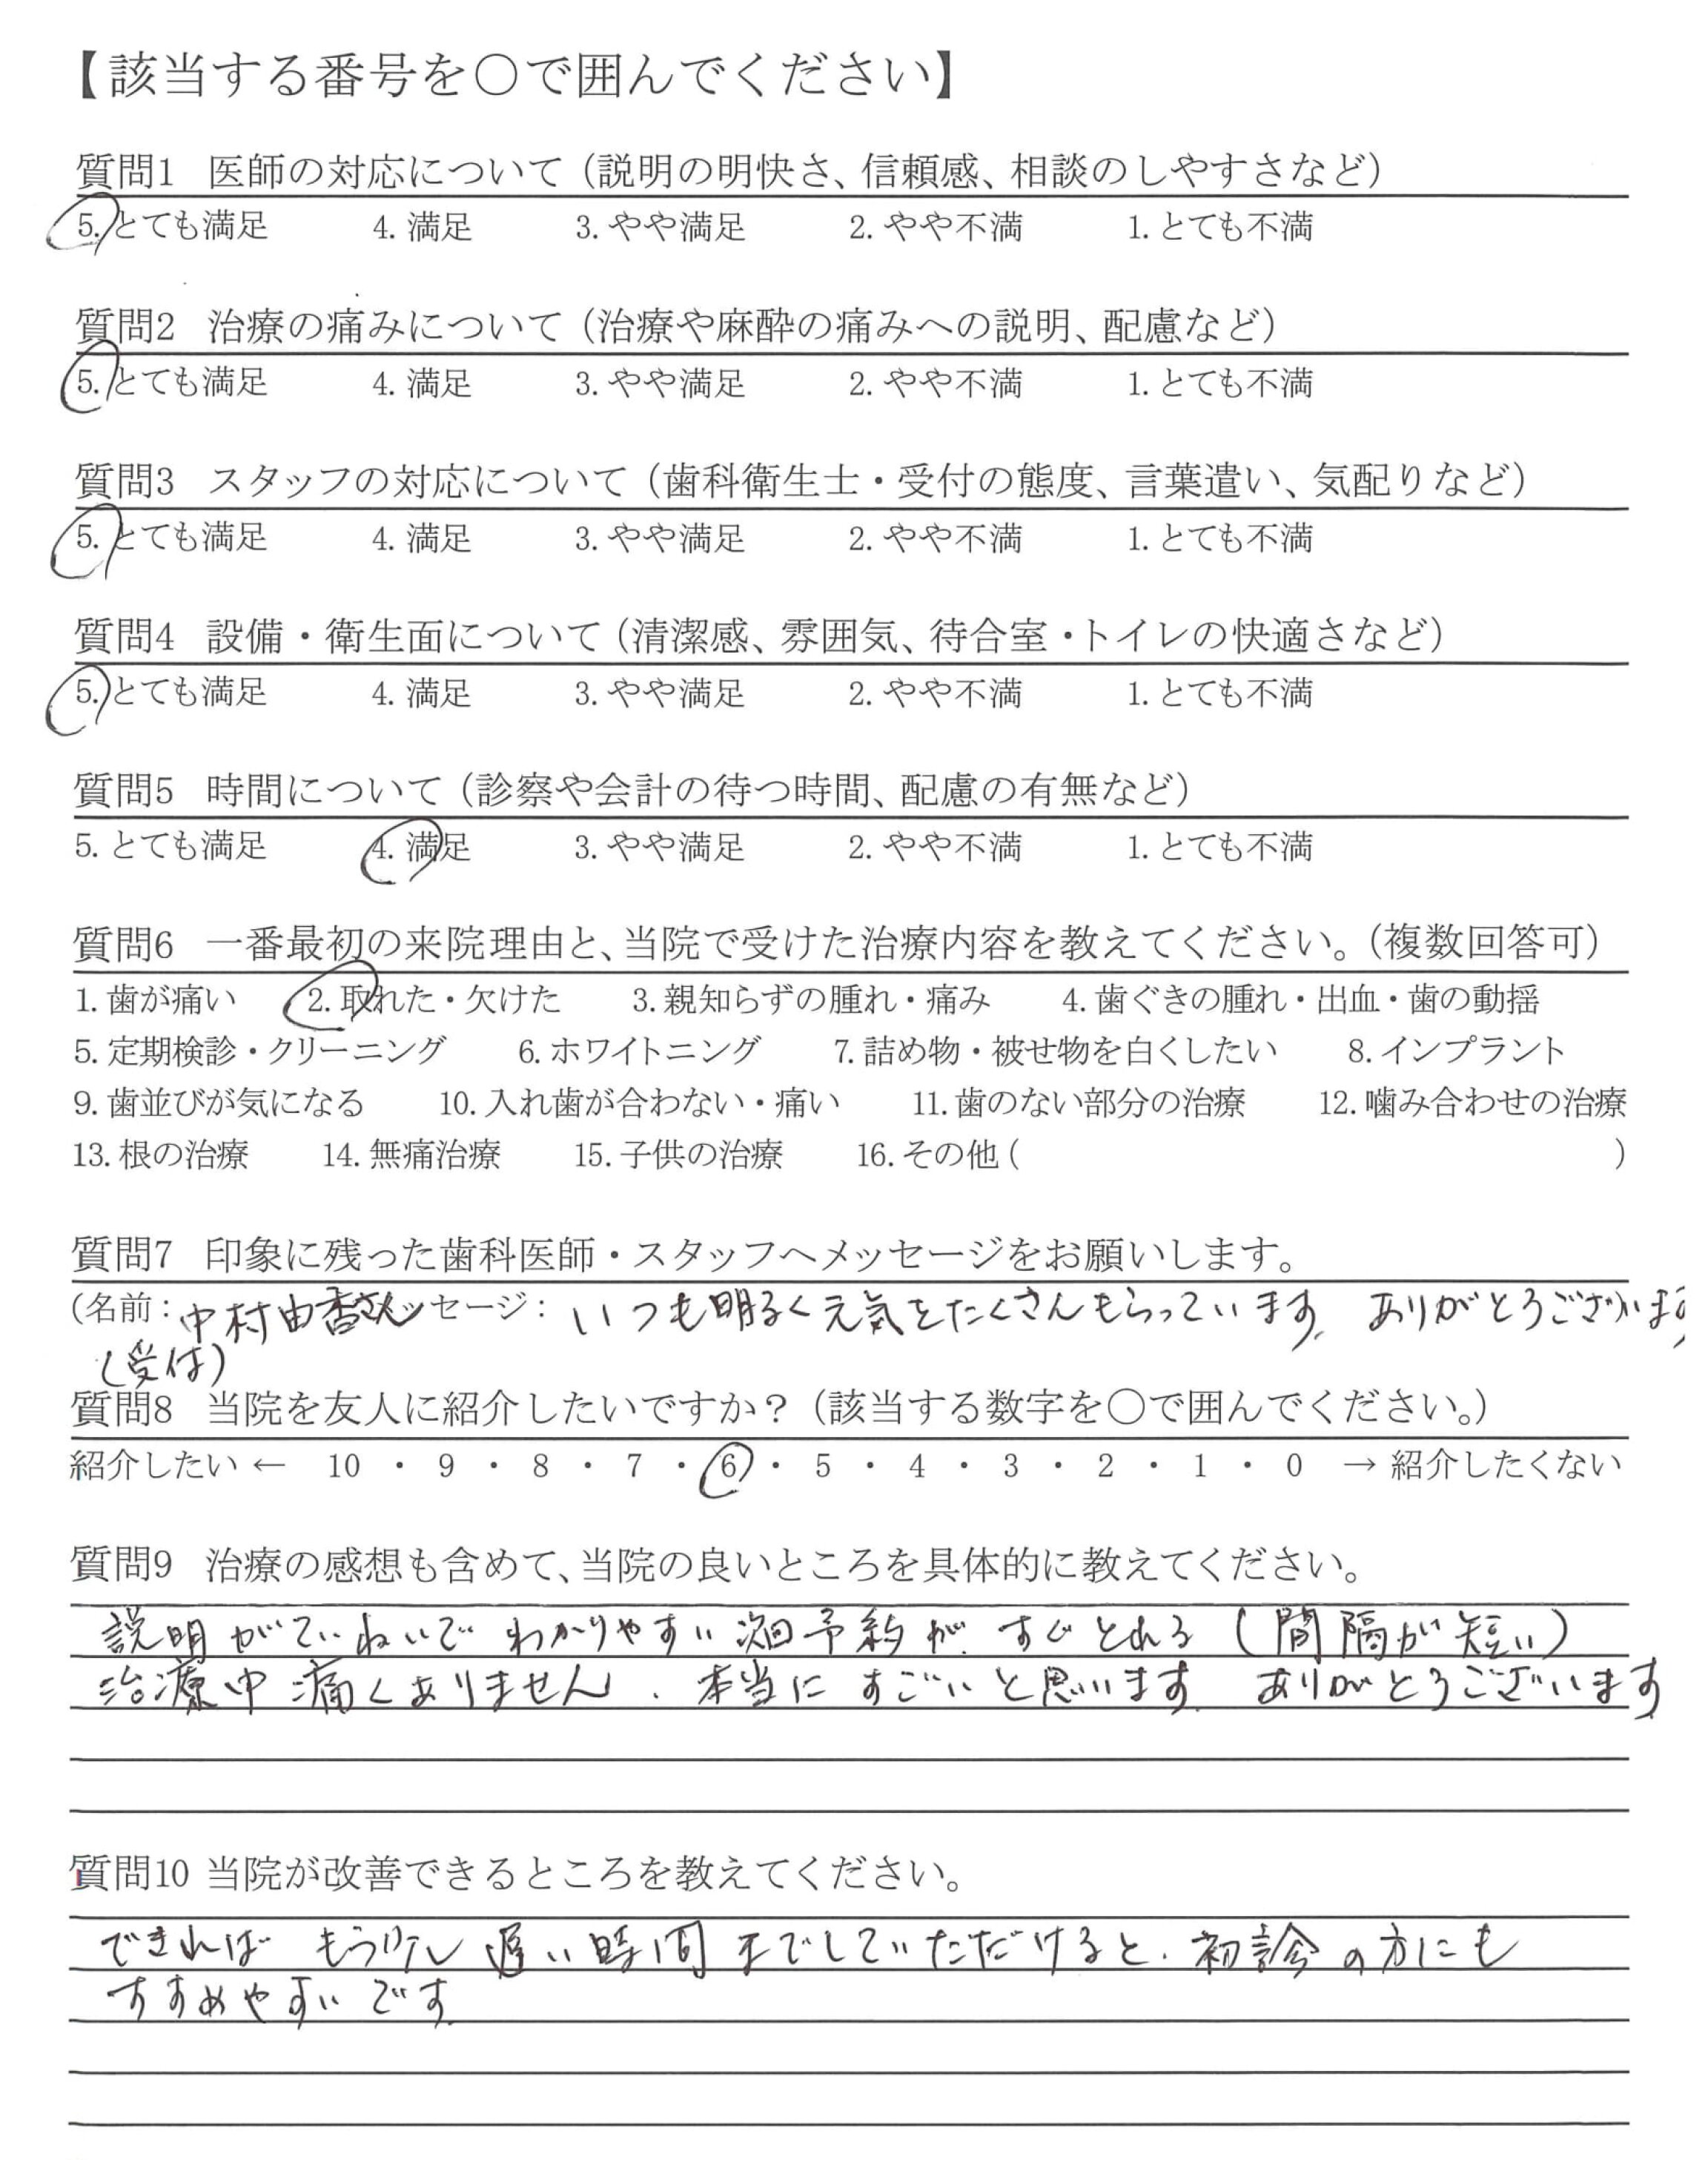 【該当する番号を〇で囲んでください】
質問1 医師の対応について（説明の明快さ、信頼感、相談のしやすさなど）
5.とても満足 4.満足 3.やや満足 2.やや不満 1.とても不満
質問2 治療の痛みについて（治療や麻酔の痛みへの説明、配慮など）
5.とても満足 4.満足 3.やや満足 2.やや不満 1.とても不満
質問3 スタッフの対応について（歯科衛生士・受付の態度、言葉遣い、気配りなど）
5.とても満足 4.満足 3.やや満足 2.やや不満 1.とても不満
質問4 設備・衛生面について（清潔感、雰囲気、待合室・トイレの快適さなど）
5.とても満足 4.満足 3.やや満足 2.やや不満 1.とても不満
質問5 時間について（診察や会計の待つ時間、配慮の有無など）
5.とても満足 4.満足 3.やや満足 2.やや不満 1.とても不満
質問6 一番最初の来院理由と、当院で受けた治療内容を教えてください。（複数回答可）
1.歯が痛い 2.取れた・欠けた 3.親知らずの腫れ・痛み 4.歯ぐきの腫れ・出血・歯の動揺
5.定期検診・クリーニング 6.ホワイトニング 7.詰め物・被せ物を白くしたい 8.インプラント
9.歯並びが気になる 10.入れ歯が合わない・痛い 11.歯のない部分の治療 12.噛み合わせの治療
13.根の治療 14.無痛治療 15.子供の治療 16.その他（ ）
質問7 印象に残った歯科医師・スタッフへメッセージをお願いします。
（名前：中村由香さん ッセージ：いつも明るく元気をたくさんもらっています。ありがとうございます
（受付）
質問8 当院を友人に紹介したいですか？（該当する数字を〇で囲んでください。）
紹介したい ← 10 ・ 9 ・ 8 ・ 7 ・ 6 ・ 5 ・ 4 ・ 3 ・ 2 ・ 1 ・ 0 → 紹介したくない
質問9 治療の感想も含めて、当院の良いところを具体的に教えてください。
説明がていねいでわかりやすい 次回予約が、すぐとれる（間隔が短い）
治療中痛くありません。本当にすごいと思います。ありがとうございます
質問10 当院が改善できるところを教えてください。
できれば もう少し遅い時間までしていただけると、初診の方にも
すすめやすいです。